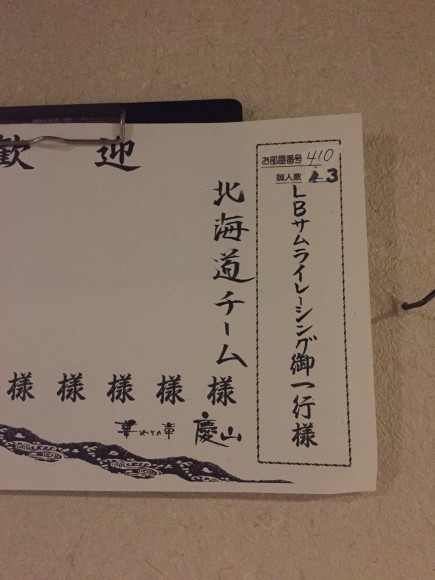 歓迎
お部屋番号 410
御人数 3
LBサムライレーシング御一行様
北海道チーム 様
様
様
様
様
華やぎの章 慶山